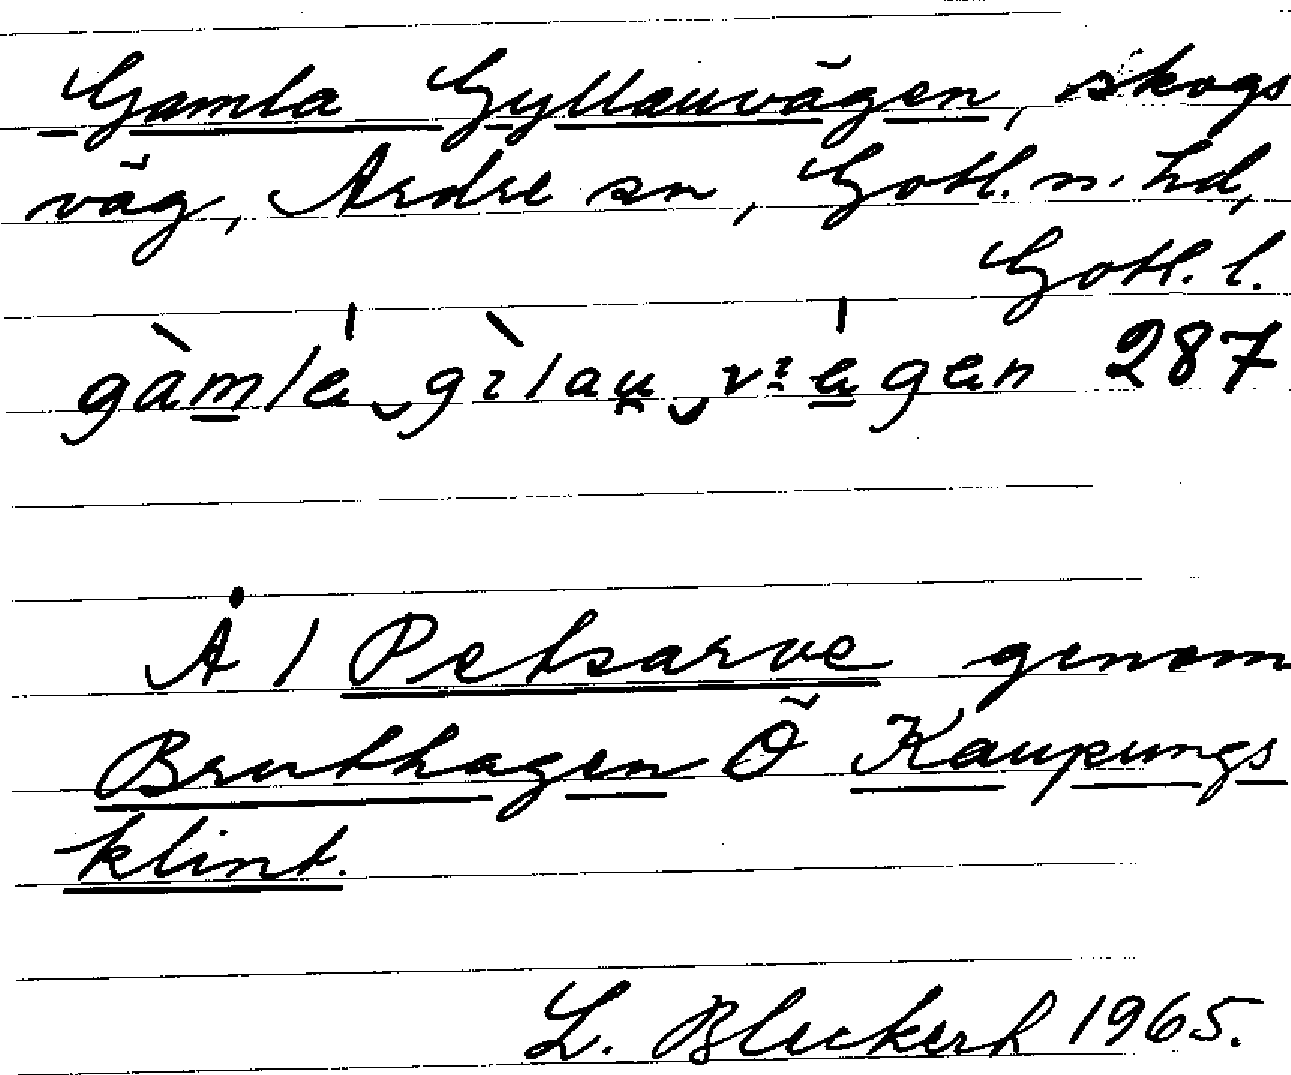 Gamla Gyllauvägen, skogs
väg, Ardre sn, Gotl. n. hd,
Gotl. l.
gàmla gìlau vägen 287
Å 1 Petsarve genom
Bruthagen Ö Kaupungs
klint.
L. Bleckert 1965.